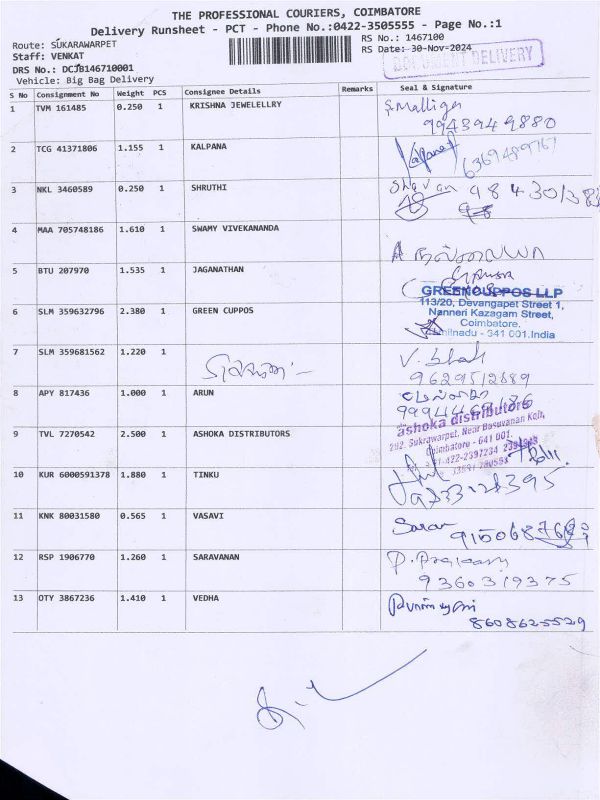 THE PROFESSIONAL COURIERS, COIMBATORE
Delivery Runsheet - PCT - Phone No.:0422-3505555 - Page No.:1
Route: SUKARAWARPET
RS No.: 1467100
Staff: VENKAT
RS Date: 30-Nov-2024
DOCUMENT DELIVERY
DRS No.: DCJB146710001
Vehicle: Big Bag Delivery
S No Consignment No Weight PCS Consignee Details Remarks Seal & Signature
1 TVM 161485 0.250 1 KRISHNA JEWELELLRY S.Malliga
9943949880
2 TCG 41371806 1.155 1 KALPANA Kalpana
6369489767
3 NKL 3460589 0.250 1 SHRUTHI
4 MAA 705748186 1.610 1 SWAMY VIVEKANANDA
5 BTU 207970 1.535 1 JAGANATHAN
GREENCUPPOS LLP
113/20, Devangapet Street 1,
6 SLM 359632796 2.380 1 GREEN CUPPOS Nanneri Kazagam Street,
Coimbatore,
Tamilnadu - 641 001.India
7 SLM 359681562 1.220 1
9629512889
8 APY 817436 1.000 1 ARUN
ashoka distributors
9 TVL 7270542 2.500 1 ASHOKA DISTRIBUTORS 282, Sukrawarpet, Near Basuvanan Koil,
Coimbatore - 641 001.
10 KUR 6000591378 1.880 1 TINKU
11 KNK 80031580 0.565 1 VASAVI Saran
12 RSP 1906770 1.260 1 SARAVANAN
9360319375
13 OTY 3867236 1.410 1 VEDHA
8608625529